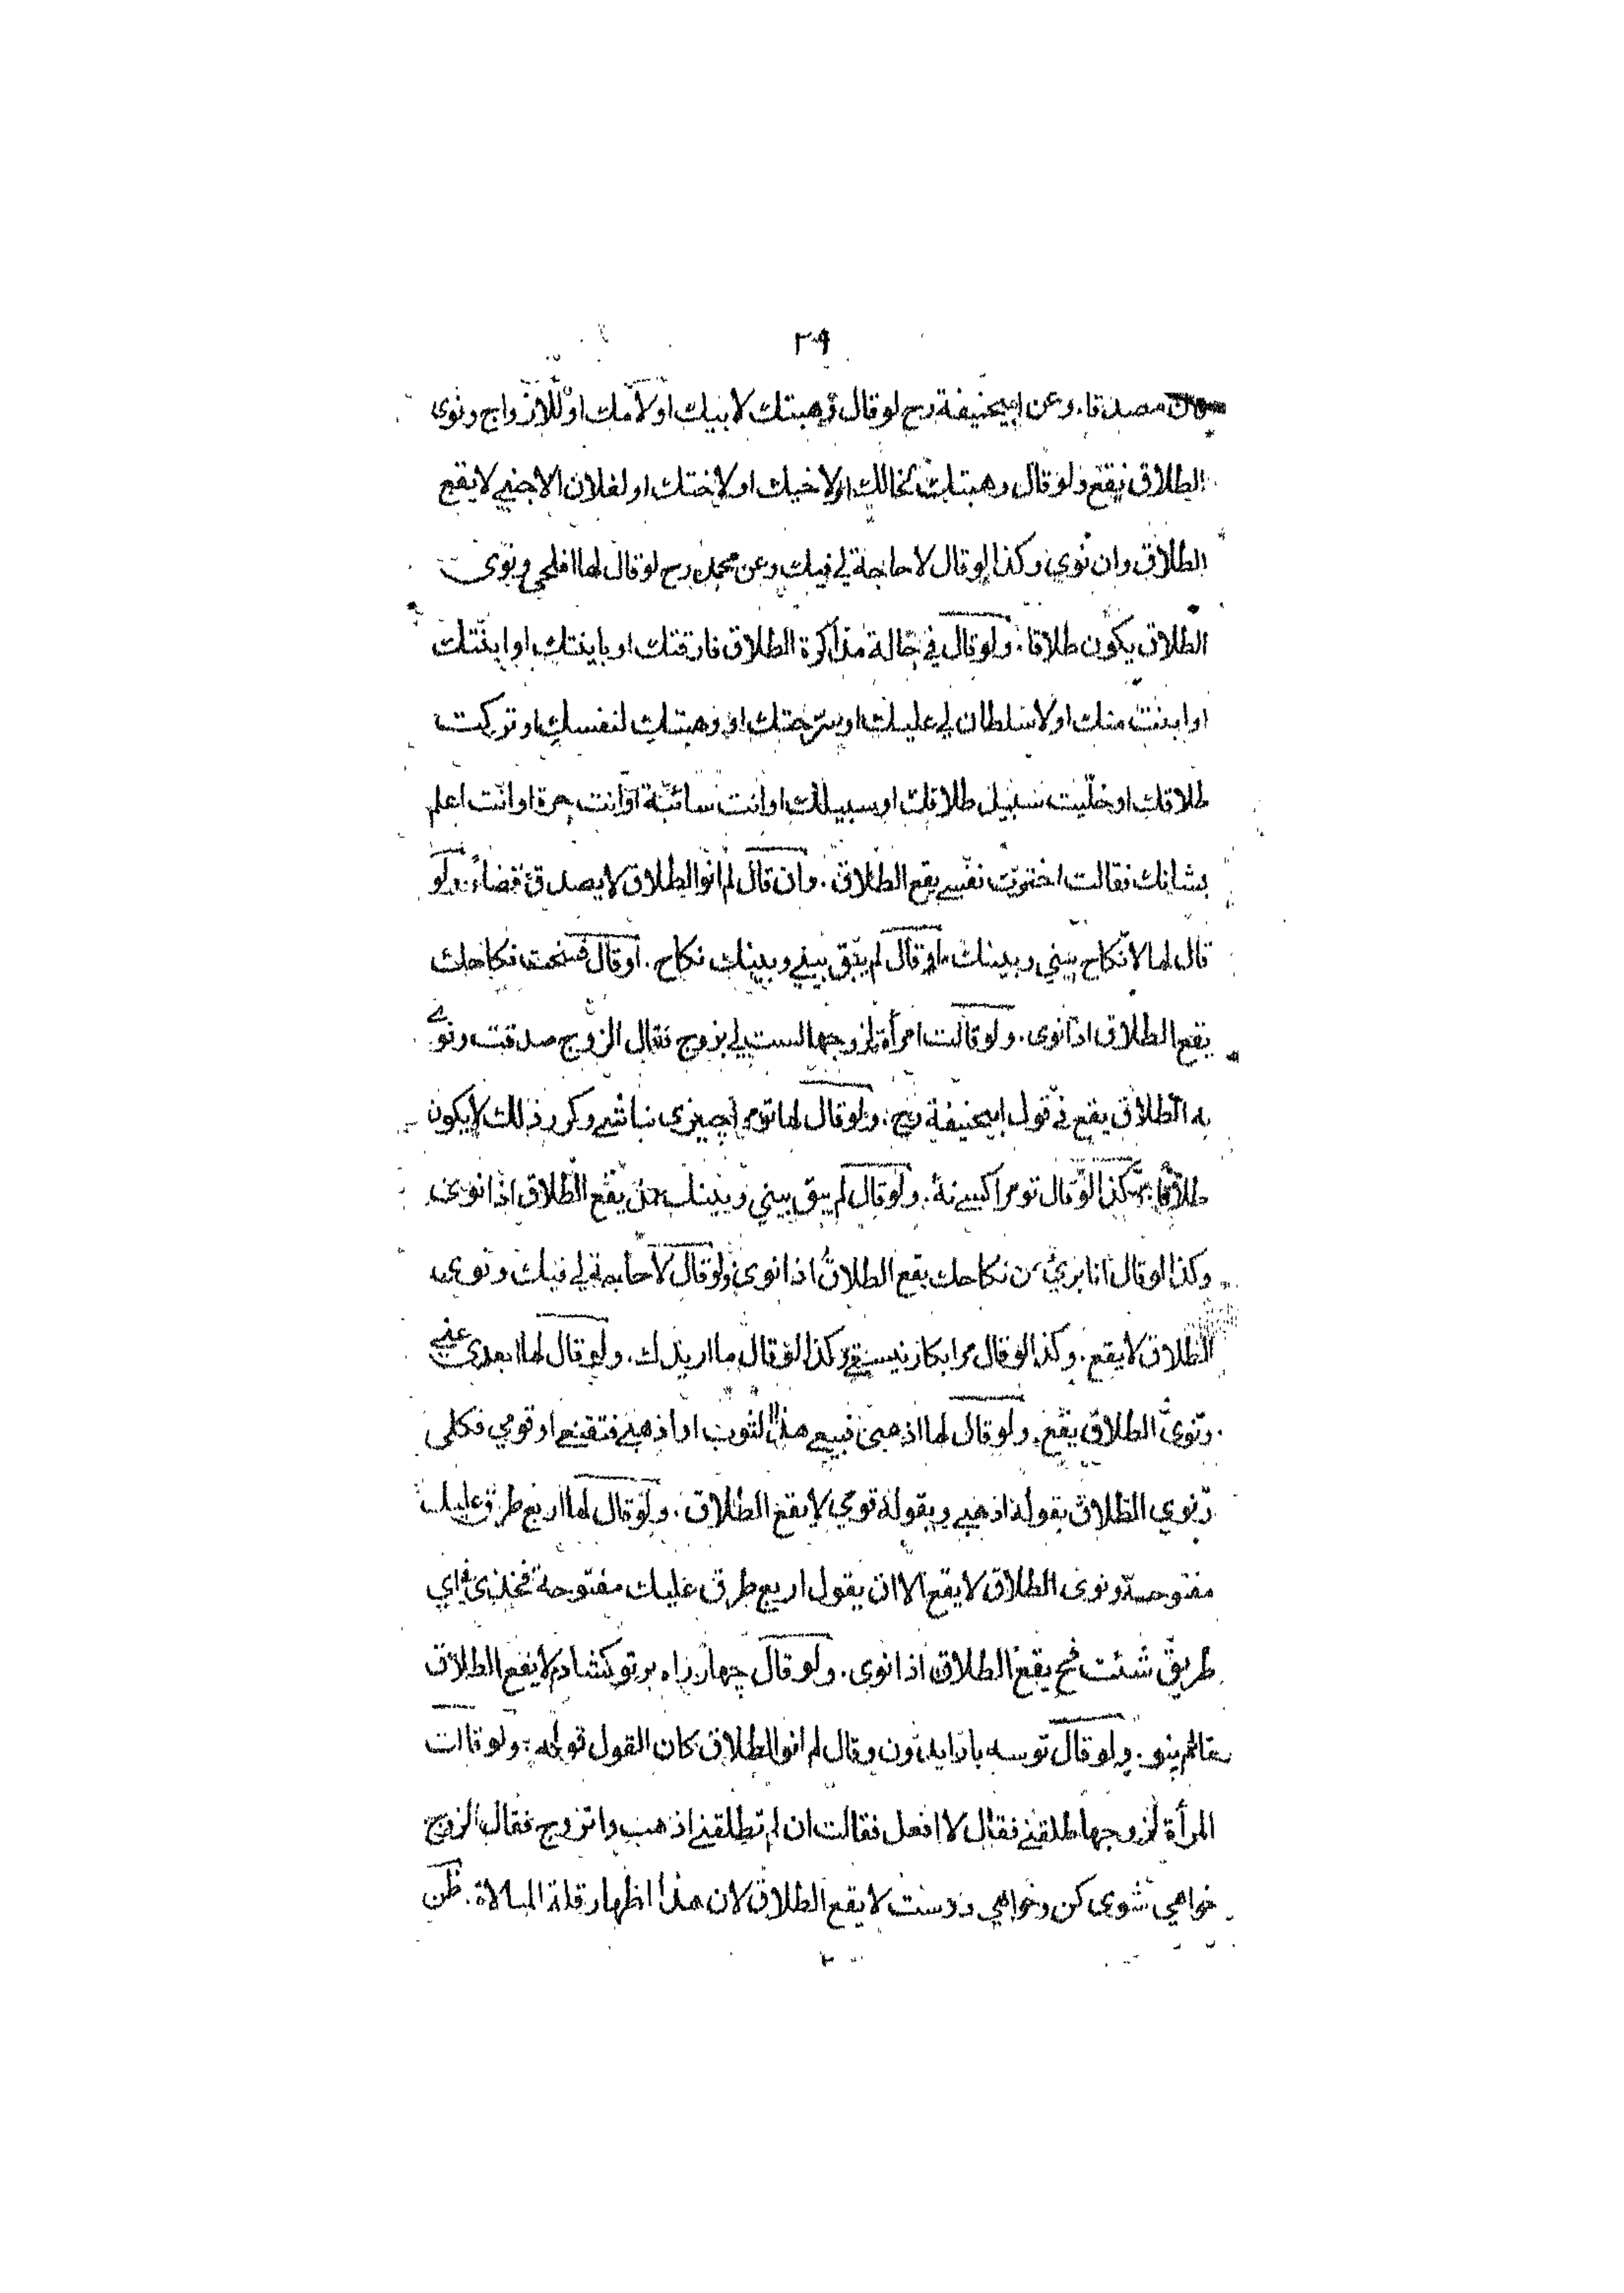 ٢٩
مصدقا. وعن ابيحنيفة رح لو قال وهبتك لابيك او لامك او للازواج ونوى
الطلاق يقع ولو قال وهبتك لخالك او لاخيك او لاختك او لفلان الاجنبي لا يقع
الطلاق وان نوى وكذا لو قال لا حاجة لي فيك وعن محمد رح لو قال لها افلحي ونوى
الطلاق يكون طلاقا. ولو قال في حالة مذاكرة الطلاق فارقتك او باينتك او ابنتك
او ابنت منك او لا سلطان لي عليك او سرّحتك او وهبتك لنفسك او تركت
طلاقك او خلّيت سبيل طلاقك او سبيلك او انت سائبة او انت حرة او انت اعلم
بشانك فقالت اخترت نفسي يقع الطلاق. وان قال لم انو الطلاق لا يصدق قضاءً. ولو
قال لها لا نكاح بيني وبينك او قال لم يبق بيني وبينك نكاح. او قال فسخت نكاحك
يقع الطلاق اذا نوى. ولو قالت امرأة لزوجها لست لي بزوج فقال الزوج صدقت ونوى
به الطلاق يقع في قول ابيحنيفة رح. ولو قال لها تو مرا چيزى نباشي وكرر ذلك لا يكون
طلاقا وكذا لو قال تو مرا كسي نهٔ. ولو قال لم يبق بيني وبينك عمل يقع الطلاق اذا نوى
وكذا لو قال انا برئ من نكاحك يقع الطلاق اذا نوى ولو قال لا حاجة لي فيك ونوى
الطلاق لا يقع. وكذا لو قال مرا بكار نيستي وكذا لو قال ما اريدك. ولو قال لها ابعدى عني
ونوى الطلاق يقع. ولو قال لها اذهبى فبيعي هذا الثوب او اذهبي فتقنعي او قومي فكلى
ونوي الطلاق بقوله اذهبي وبقوله قومي لا يقع الطلاق. ولو قال لها اربع طرق عليك
مفتوحة ونوى الطلاق لا يقع الا ان يقول اربع طرق عليك مفتوحة فخذى في اي
طريق شئت فح يقع الطلاق اذا نوى. ولو قال چهار راه بر تو كشادم لا يقع الطلاق
مالم ينو. ولو قال تو سه باداىدون وقال لم انو الطلاق كان القول قوله. ولو قالت
المرأة لزوجها طلقني فقال لا افعل فقالت ان لم تطلقني اذهب واتزوج فقال الزوج
خواهي شوى كن وخواهي دوست لا يقع الطلاق لان هذا اظهار قلة المبالاة.